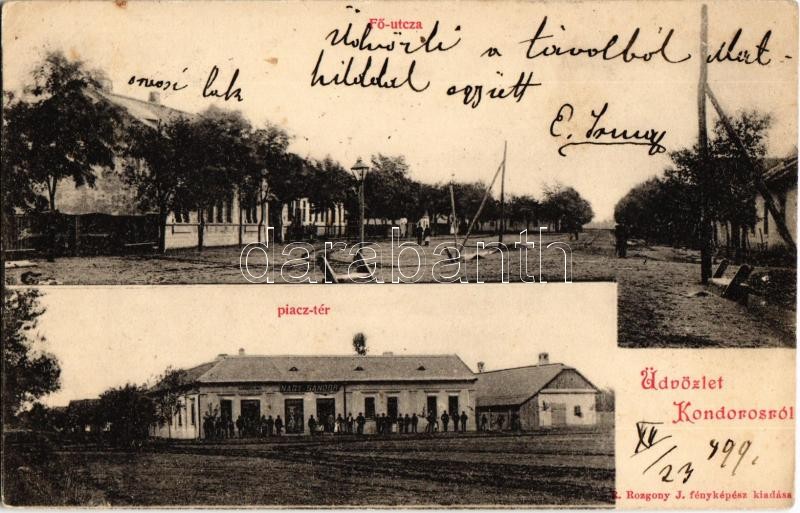 Fő-utcza
Üdvözli a távolból Mat-
hilddal együtt
orvosi lak
E.
darabanth
piacz-tér
NAGY SÁNDOR
Üdvözlet
Kondorosról
XII/23 899.
R. Rozgony J. fényképész kiadása